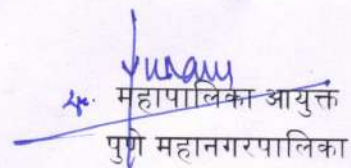 महापालिका आयुक्त
पुणे महानगरपालिका